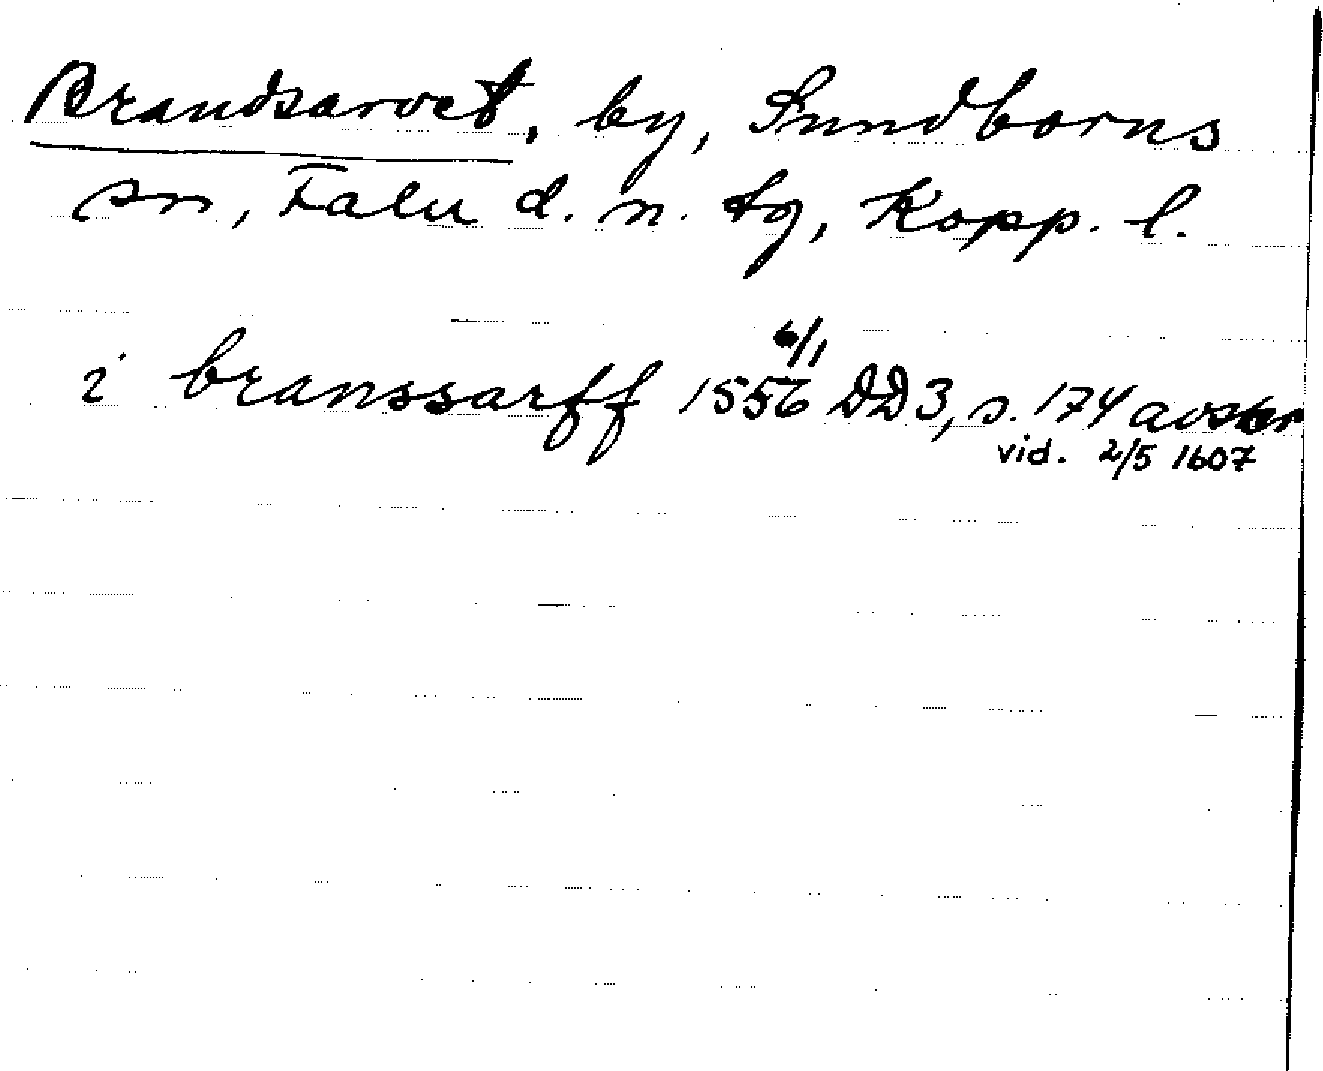 Brandsarvet, by, Sundborns
sn, Falu d. n. tg, Kopp. l.
6/1
i branssarff 1556 DD3, s. 174 avskr
vid. 2/5 1607